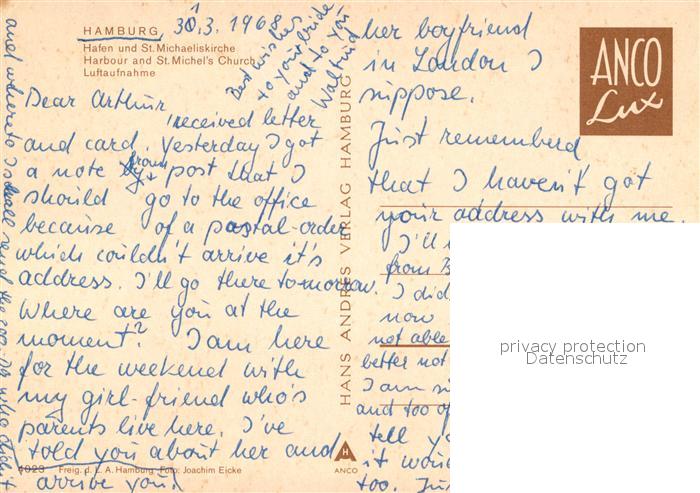 HAMBURG 30.3.1968
Hafen und St. Michaeliskirche
Harbour and St. Michel's Church
Luftaufnahme
Best wishes
to your bride
and to you
Waltraud
Dear Arthur
received letter
and card. Yesterday I got
a note from post that I
should go to the office
because of a postal-order
which couldn't arrive it's
address. I'll go there tomorrow.
Where are you at the
moment? I am here
for the weekend with
my girl-friend who's
parents live here. I've
told you about her and
her boyfriend
in London I
suppose.
Just rememberd
that I haven't got
your address with me.
I'll
from
I did
now
not able
better not
I am
and too
tell
it
too.
and where to I shall send the
arrive you?
HANS ANDRES VERLAG HAMBURG
ANCO
Lux
4023 Freig. d. L. A. Hamburg Foto: Joachim Eicke
H
ANCO
privacy protection
Datenschutz